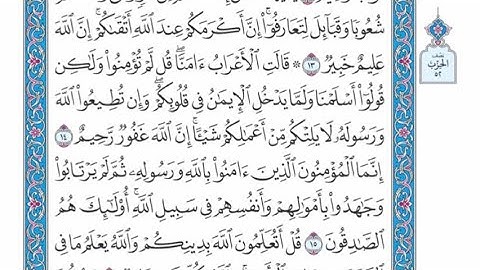 شُعُوبًا وَقَبَآئِلَ لِتَعَارَفُوٓا۟ ۚ إِنَّ أَكْرَمَكُمْ عِندَ ٱللَّهِ أَتْقَىٰكُمْ ۚ إِنَّ ٱللَّهَ
عَلِيمٌ خَبِيرٌ ١٣ ۞ قَالَتِ ٱلْأَعْرَابُ ءَامَنَّا ۖ قُل لَّمْ تُؤْمِنُوا۟ وَلَـٰكِن
قُولُوٓا۟ أَسْلَمْنَا وَلَمَّا يَدْخُلِ ٱلْإِيمَـٰنُ فِى قُلُوبِكُمْ ۖ وَإِن تُطِيعُوا۟ ٱللَّهَ
وَرَسُولَهُۥ لَا يَلِتْكُم مِّنْ أَعْمَـٰلِكُمْ شَيْـًٔا ۚ إِنَّ ٱللَّهَ غَفُورٌ رَّحِيمٌ ١٤
إِنَّمَا ٱلْمُؤْمِنُونَ ٱلَّذِينَ ءَامَنُوا۟ بِٱللَّهِ وَرَسُولِهِۦ ثُمَّ لَمْ يَرْتَابُوا۟
وَجَـٰهَدُوا۟ بِأَمْوَٰلِهِمْ وَأَنفُسِهِمْ فِى سَبِيلِ ٱللَّهِ ۚ أُو۟لَـٰٓئِكَ هُمُ
ٱلصَّـٰدِقُونَ ١٥ قُلْ أَتُعَلِّمُونَ ٱللَّهَ بِدِينِكُمْ وَٱللَّهُ يَعْلَمُ مَا فِى
الحزب
٥٢